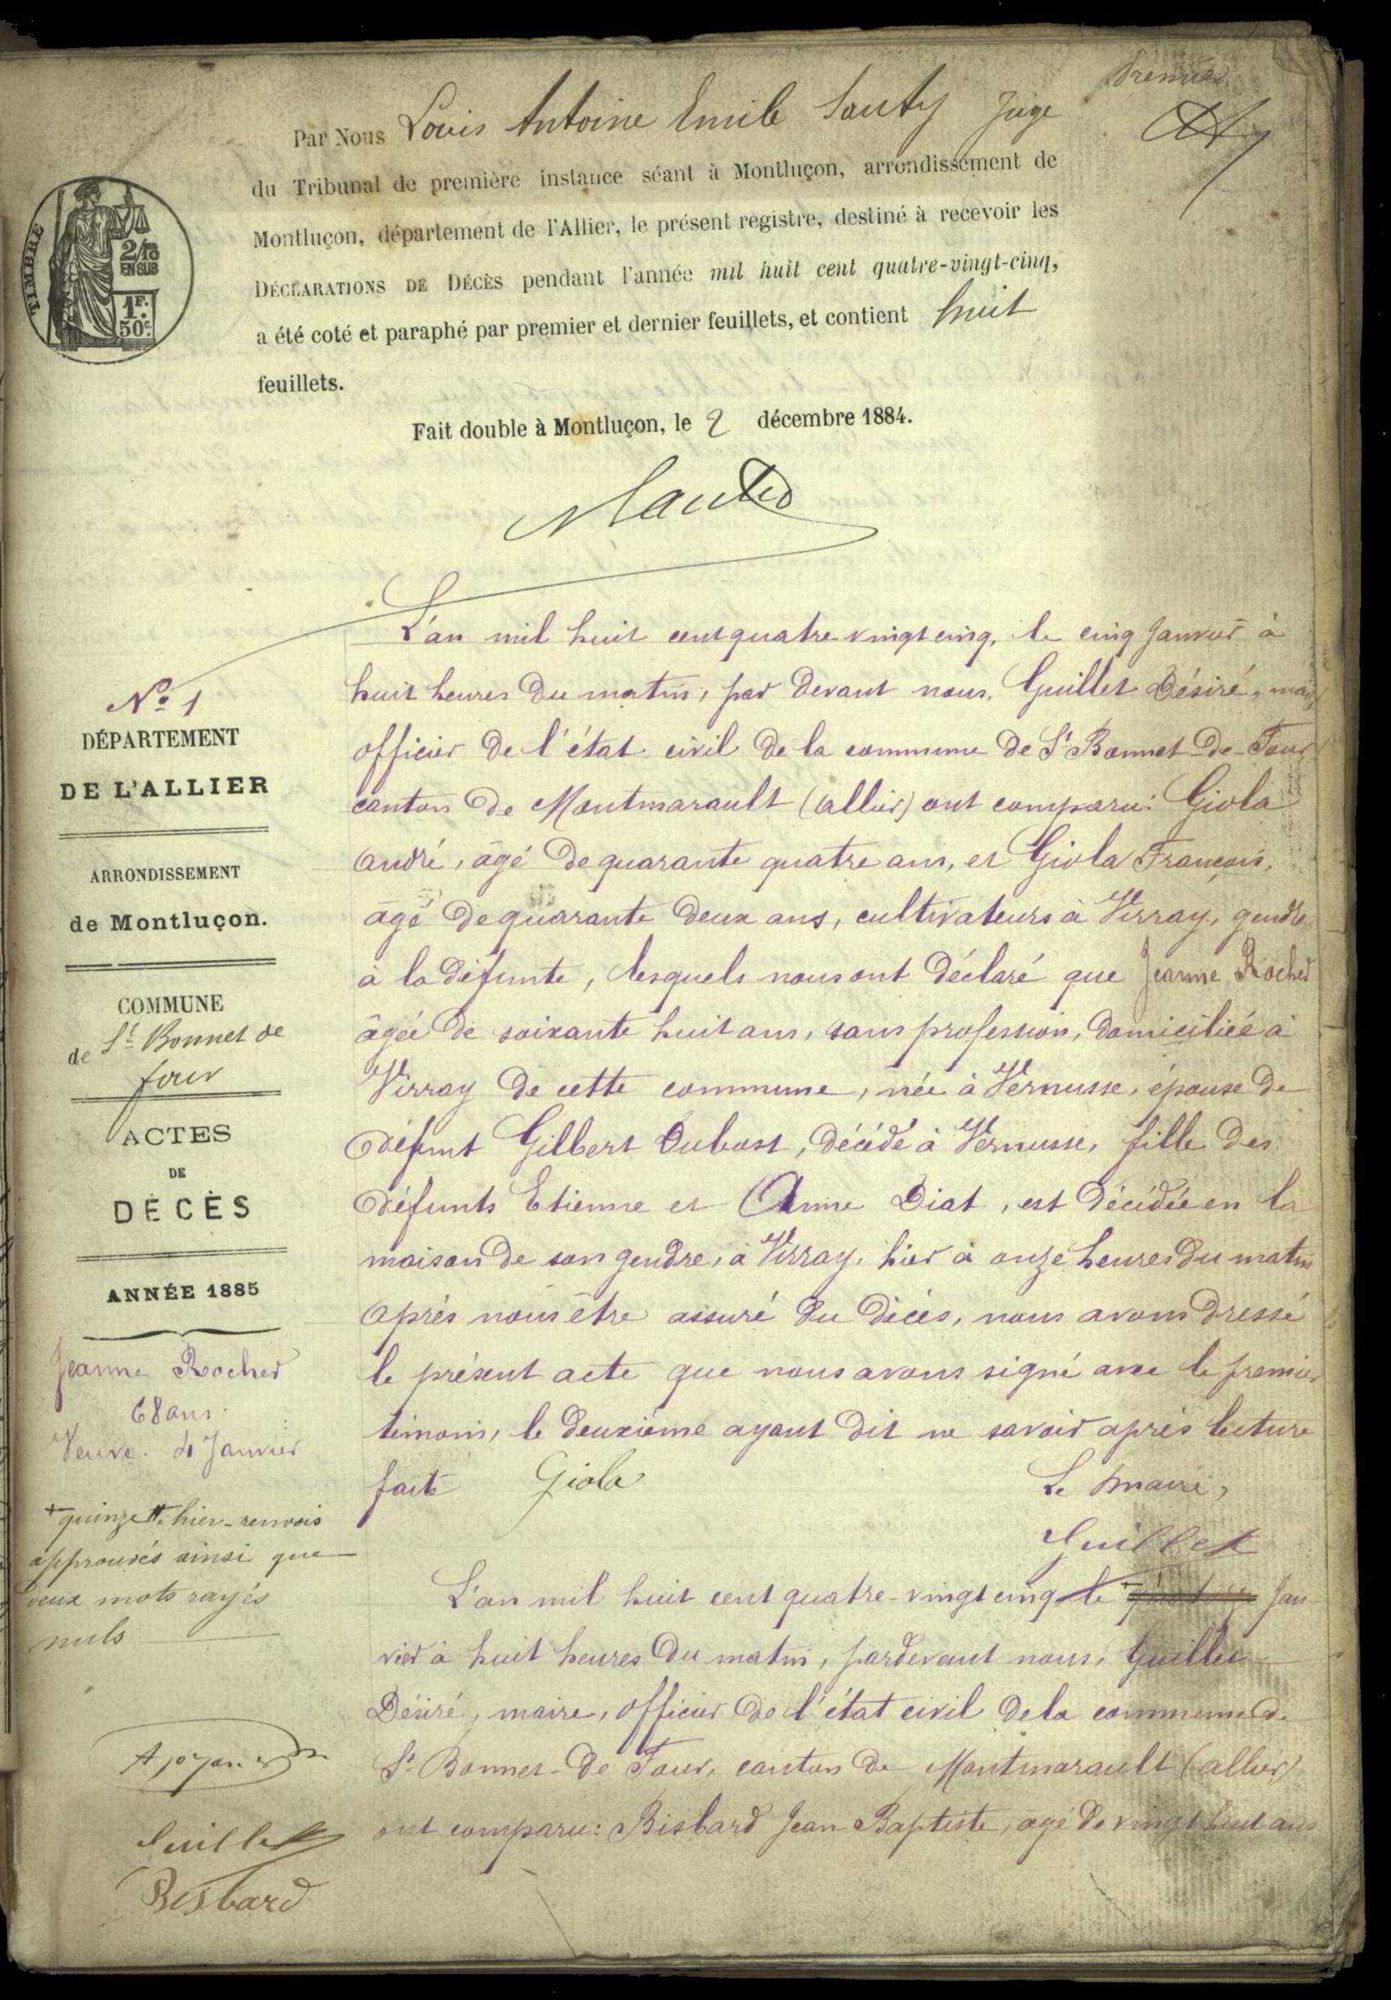 Premier
Par Nous Louis Antoine Emile Sauty Juge
du Tribunal de première instance séant à Montluçon, arrondissement de
Montluçon, département de l'Allier, le présent registre, destiné à recevoir les
DÉCLARATIONS DE DÉCÈS pendant l'année mil huit cent quatre-vingt-cinq,
a été coté et paraphé par premier et dernier feuillets, et contient huit
feuillets.
Fait double à Montluçon, le 2 décembre 1884.
TIMBRE
2/10
EN SUS
1F.
50c.
No 1
DÉPARTEMENT
DE L'ALLIER
ARRONDISSEMENT
de Montluçon.
COMMUNE
de St Bonnet de
four
ACTES
DE
DÉCÈS
ANNÉE 1885
Jeanne Rocher
68 ans.
Veuve. 4 Janvier
+ quinze # hier - renvois
approuvés ainsi que
deux mots rayés
nuls
Guillet
Bisbard
L'an mil huit cent quatre-vingt cinq, le cinq Janvier à
huit heures du matin, par devant nous, Guillet Désiré, maire
officier de l'état civil de la commune de St Bonnet-de-Four
canton de Montmarault (allier) ont comparu: Giola
André, âgé de quarante quatre ans, et Giola François,
âgé de quarante deux ans, cultivateurs à Virray, gendre
à la défunte, lesquels nous ont déclaré que Jeanne Rocher
âgée de soixante huit ans, sans profession, domiciliée à
Virray de cette commune, née à Vernusse, épouse de
défunt Gilbert Dubost, décédé à Vernusse, fille des
défunts Etienne et Anne Diat, est décédée en la
maison de son gendre, à Virray, hier à onze heures du matin
après nous être assuré du décès, nous avons dressé
le présent acte que nous avons signé avec le premier
témoin, le deuxième ayant dit ne savoir après lecture
faite Giola Le maire,
Guillet
L'an mil huit cent quatre-vingt cinq le + quatorze Jan
vier à huit heures du matin, pardevant nous, Guillet
Désiré, maire, officier de l'état civil de la commune de
St Bonnet-de-Four, canton de Montmarault (allier)
ont comparu: Bisbard Jean-Baptiste, agé de vingt huit ans